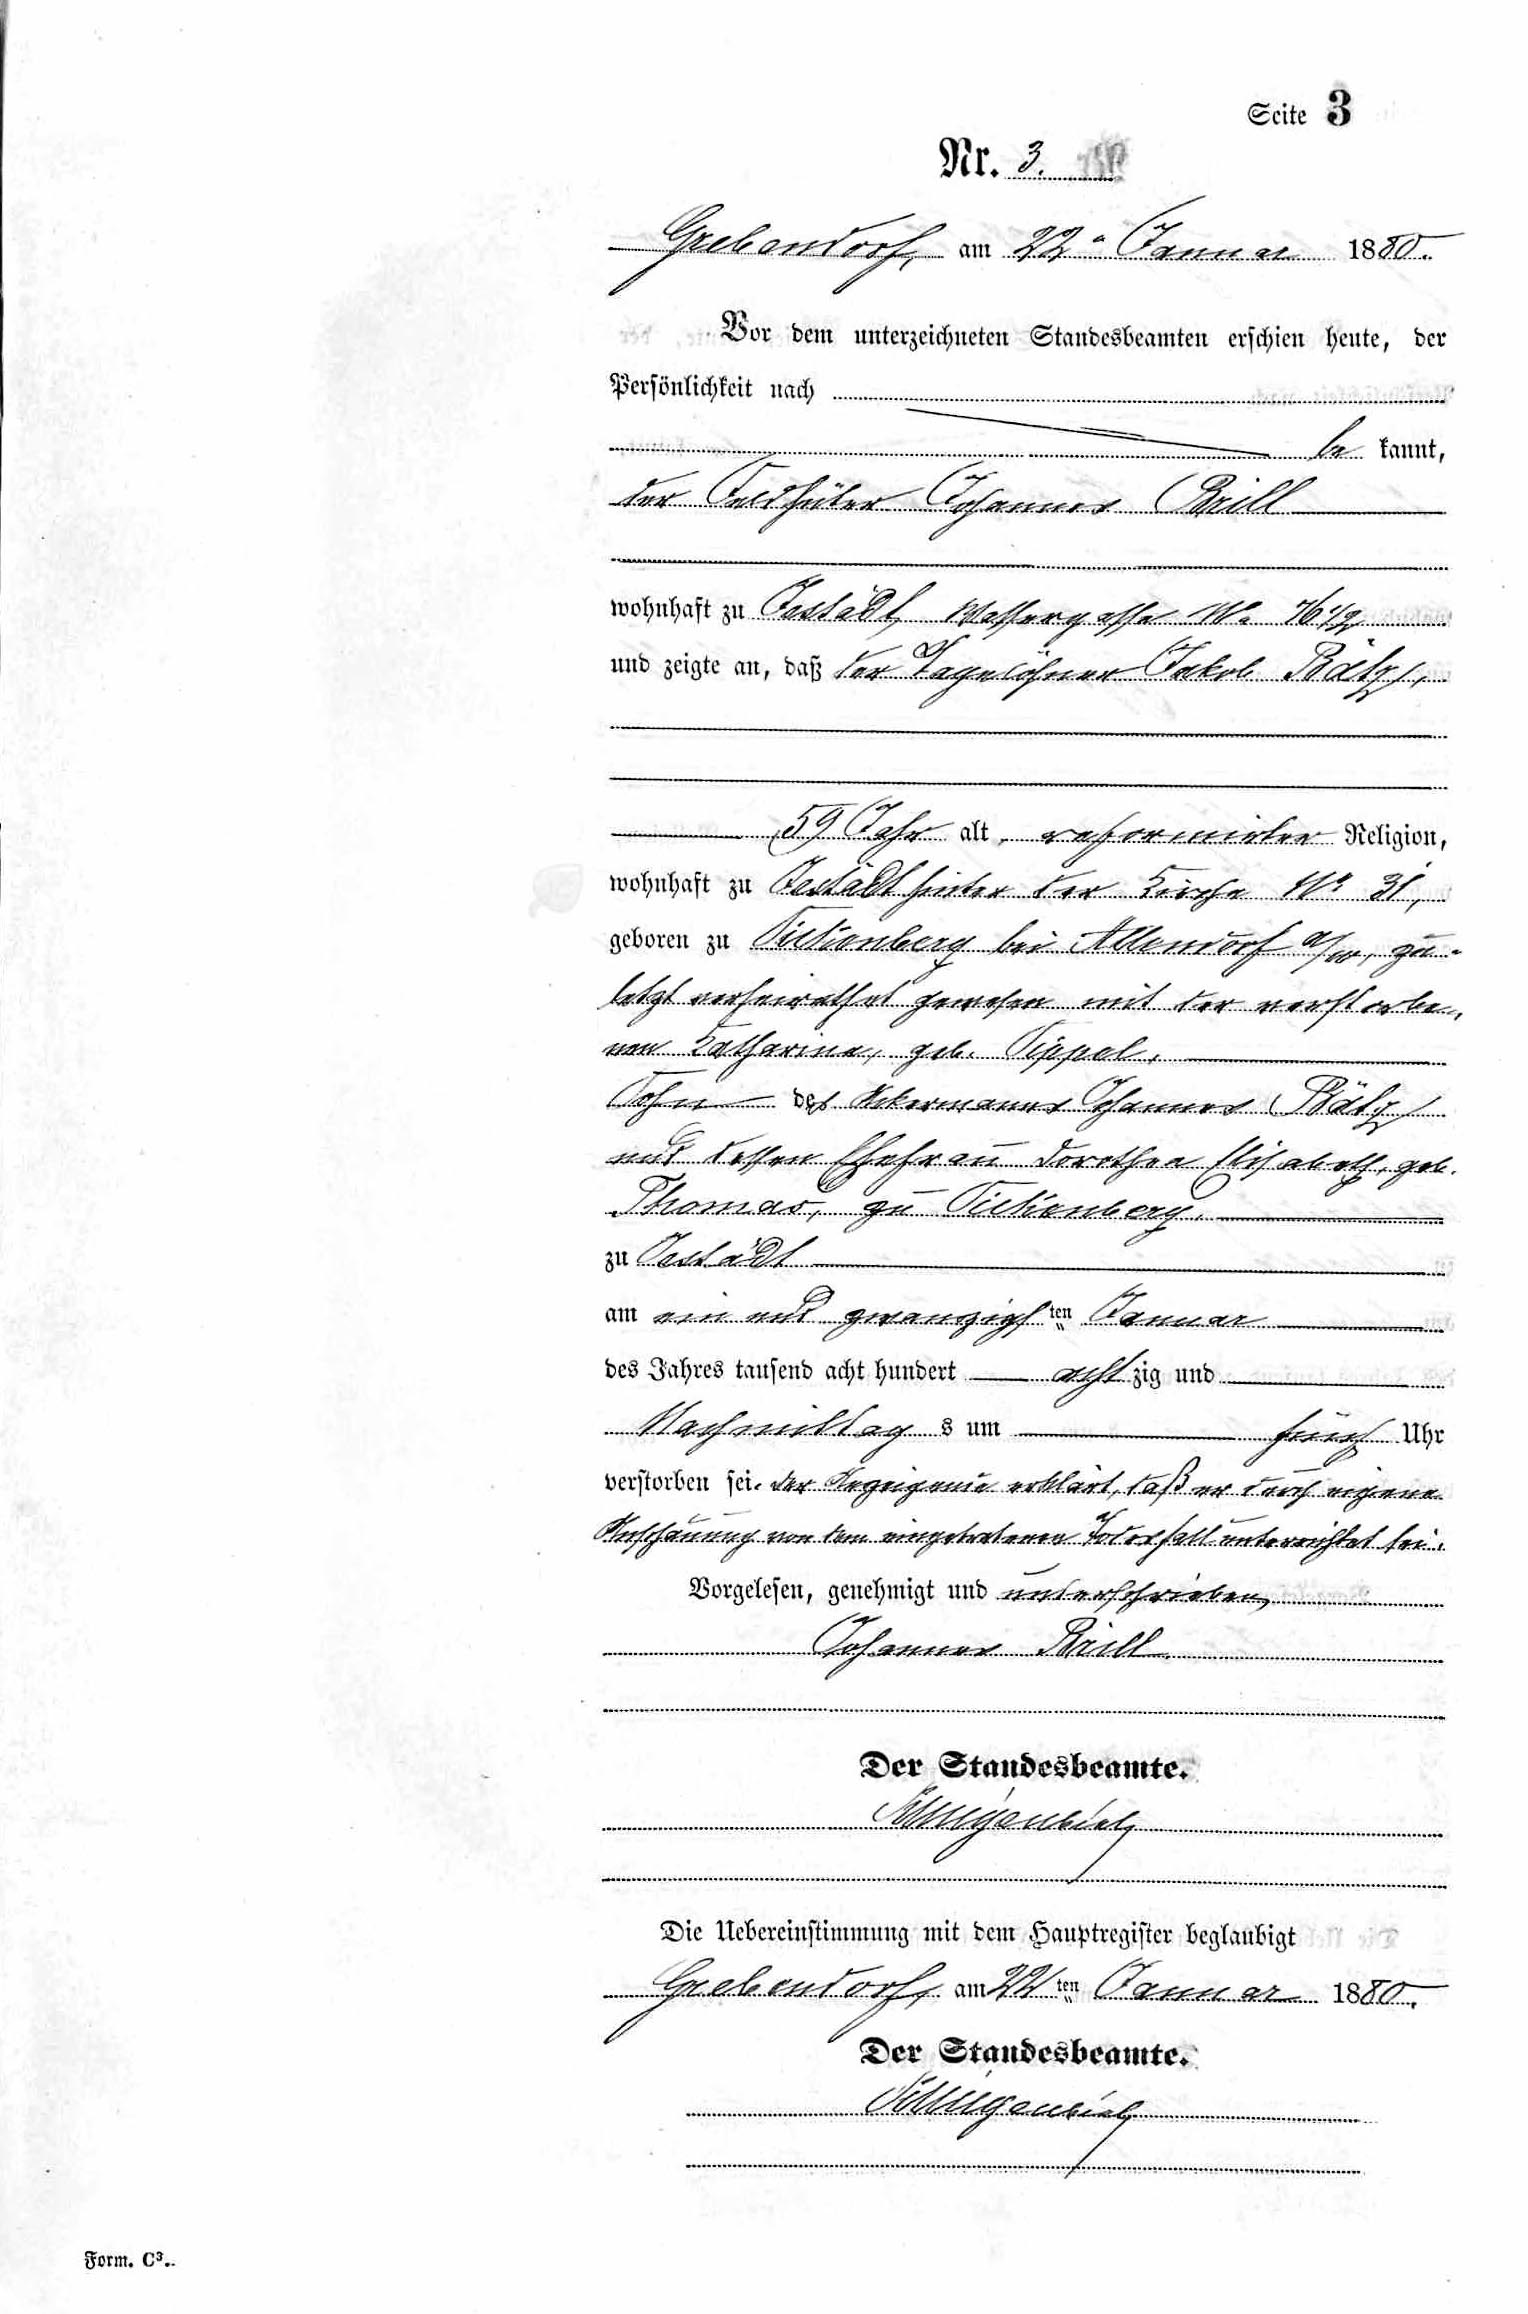 Seite 3
Nr. 3.
Grebendorf, am 22n Januar 1880.
Vor dem unterzeichneten Standesbeamten erschien heute, der
Persönlichkeit nach
be kannt,
der Feldhüter Johannes Brill
wohnhaft zu Jestädt, Wassergasse No 76 1/2
und zeigte an, daß der Tagelöhner Jakob Bätz,
59 Jahr alt, reformirter Religion,
wohnhaft zu Jestädt hinter der Kirche No 31,
geboren zu bei Allendorf a/W, zu-
letzt verheirathet gewesen mit der verstorbe-
nen Katharina, geb. Sippel,
Sohn des Ackermannes Johannes Bätz
und dessen Ehefrau Dorothea Elisabeth, geb.
Thomas, zu
zu Jestädt
am ein und zwanzigsten Januar
des Jahres tausend acht hundert achtzig und
Nachmittags um fünf Uhr
verstorben sei. Der Anzeigende erklärt, daß er durch eigene
Anschauung von dem eingetretenen Todesfall unterrichtet sei.
Vorgelesen, genehmigt und unterschrieben,
Johannes Brill
Der Standesbeamte.
Die Uebereinstimmung mit dem Hauptregister beglaubigt
Grebendorf, am 22ten Januar 1880.
Der Standesbeamte.
Form. C³.